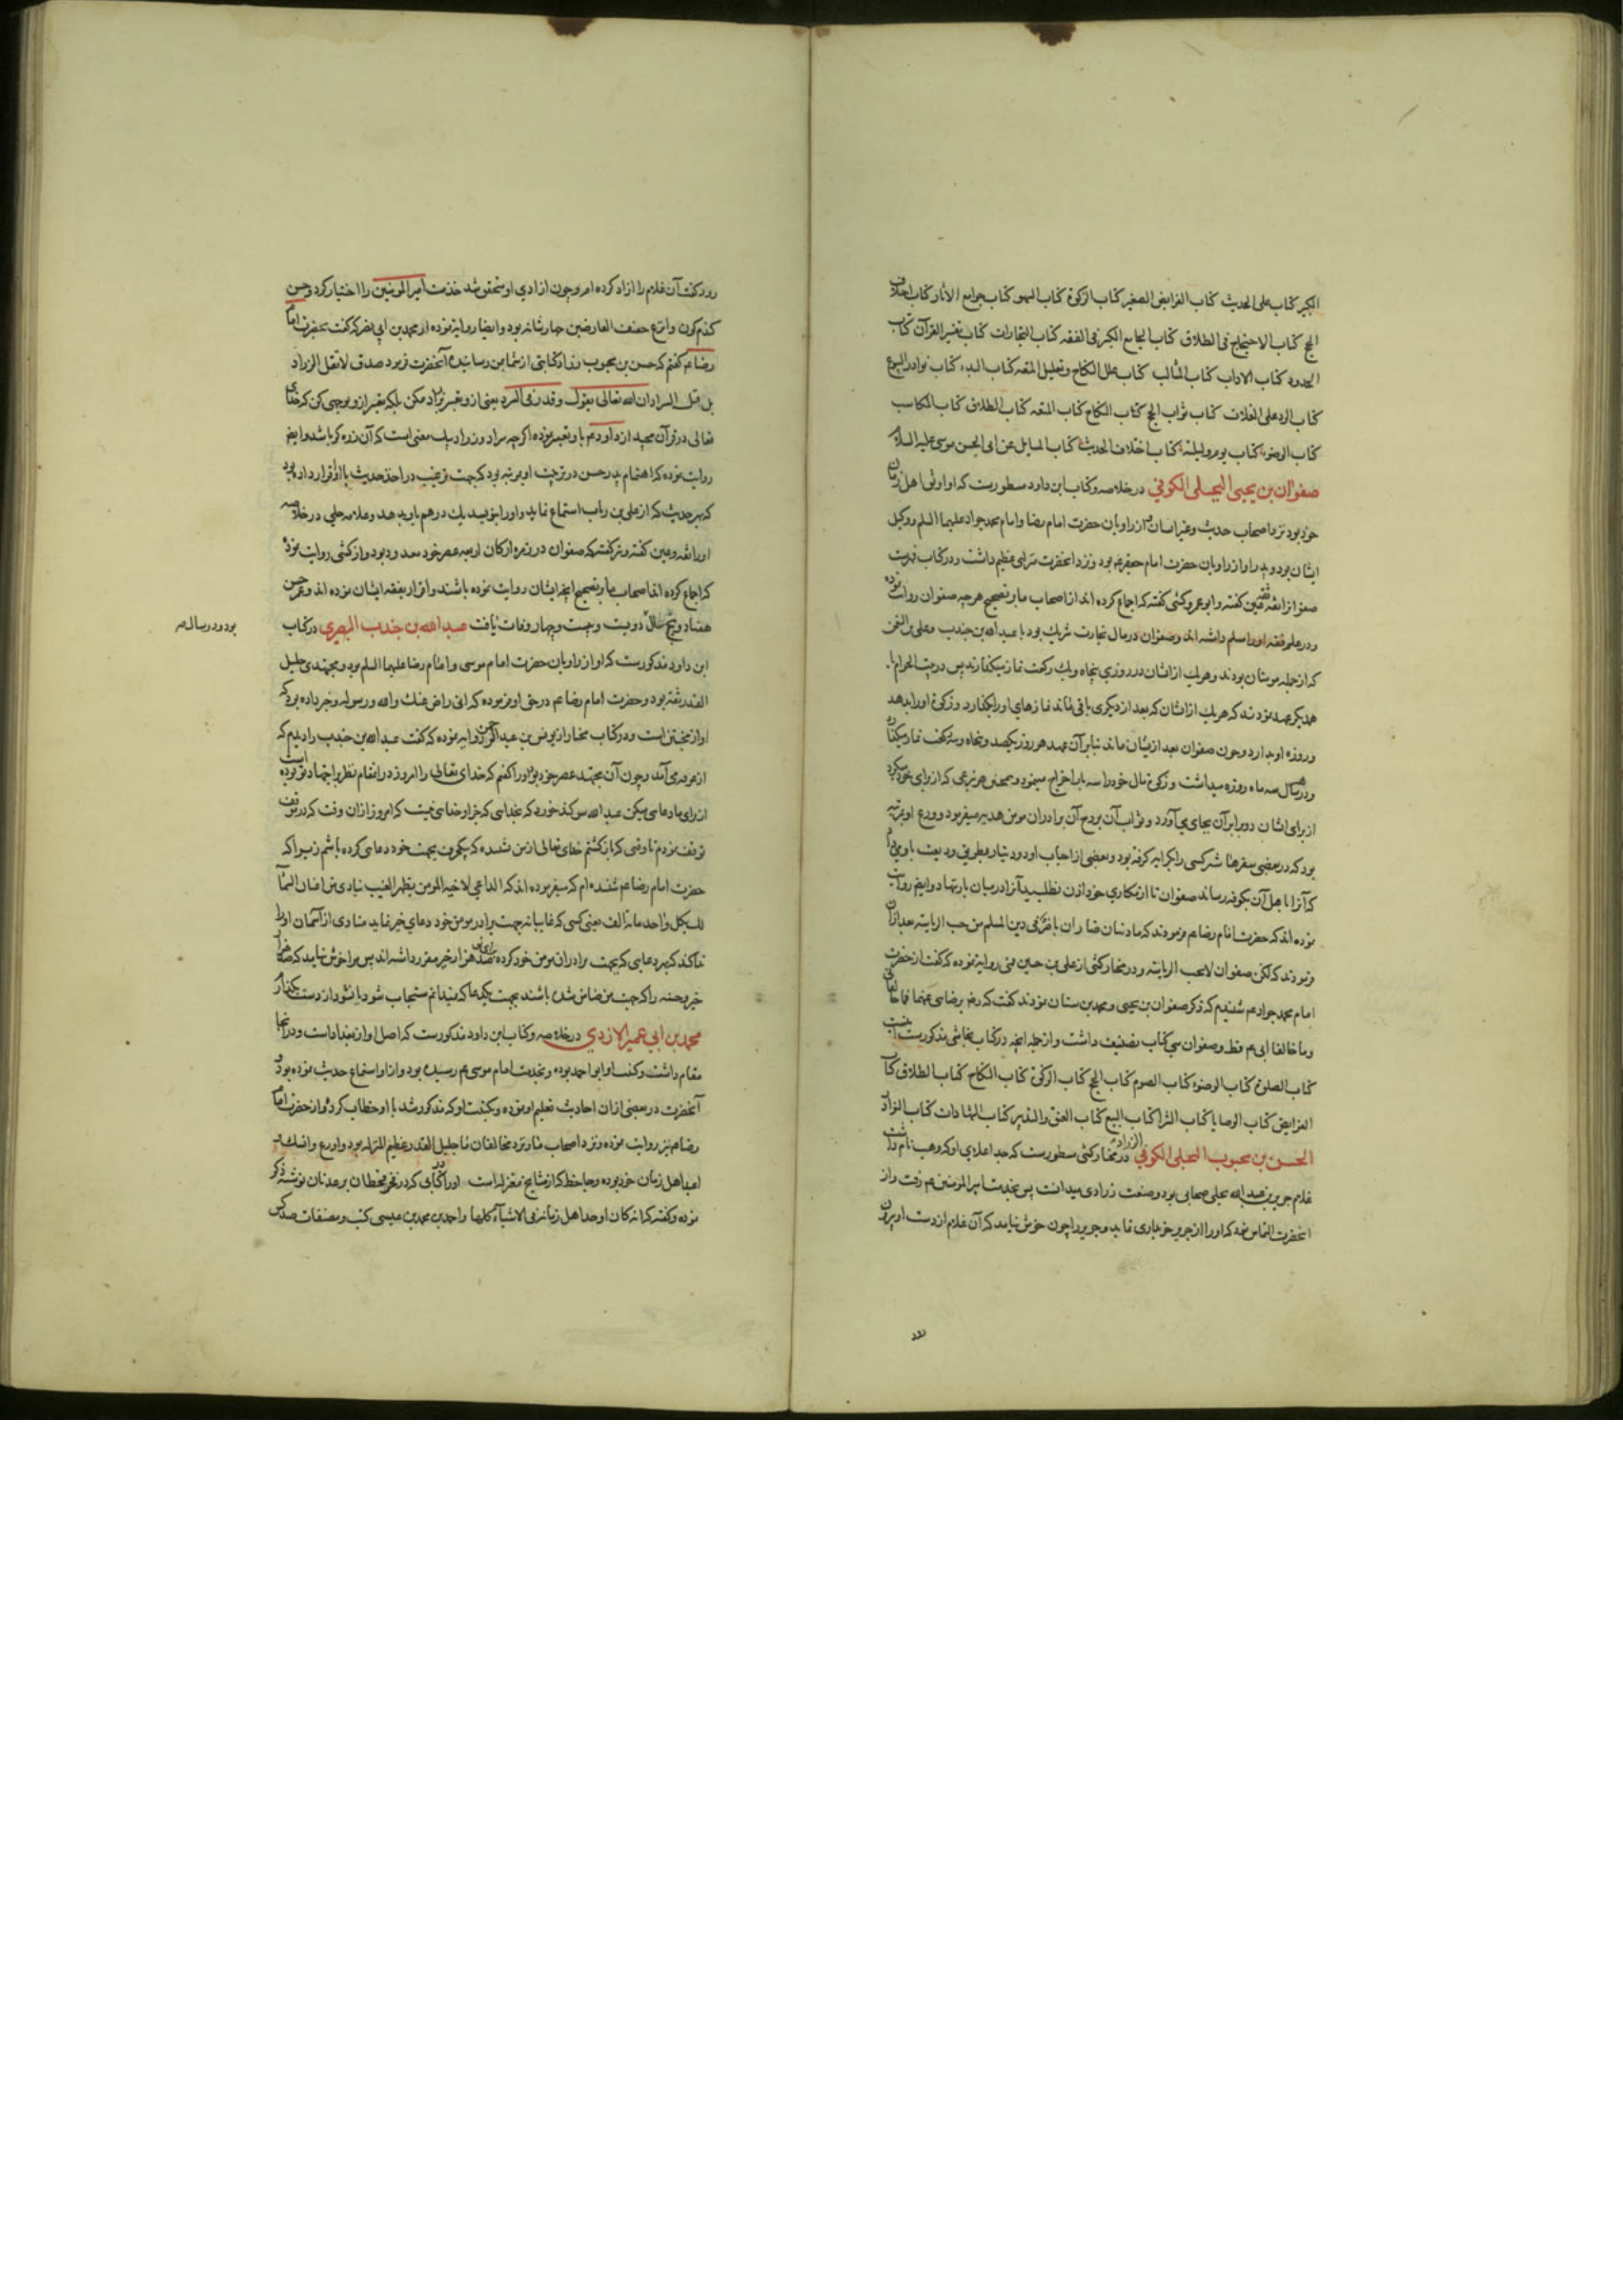 الکبیر کتاب علل الحدیث کتاب الفرایض الصغیر کتاب الزکوة کتاب السهو کتاب جوامع الاثار کتاب اختلاف
الحج کتاب الاحتجاج فی الطلاق کتاب الجامع الکبیر فی الفقه کتاب التجارات کتاب تفسیر القرآن کتاب
الحدود کتاب الاداب کتاب المثالب کتاب علل النکاح وتحلیل المتعه کتاب البدء کتاب نوادر البیوع
کتاب الرد علی الغلات کتاب ثواب الحج کتاب النکاح کتاب المتعه کتاب الطلاق کتاب المکاسب
کتاب الوضوء کتاب یوم ولیلة کتاب اختلاف الحدیث کتاب المسایل عن ابی الحسن موسی علیه السلام
صفوان بن یحیی البجلی الکوفی در خلاصه وکتاب ابن داود مسطورست که او اوثق اهل زمان
خود بود نزد اصحاب حدیث وغیر ایشان و از راویان حضرت امام رضا وامام محمد جواد علیهما السلم ووکیل
ایشان بود وپدر او از راویان حضرت امام جعفر عم بود ونزد آنحضرت منزلتی عظیم داشت ودر کتاب فهرست
گفته وابو عمرو کشی گفته که اجماع کرده اند از اصحاب ما بر تصحیح هر چه صفوان روایت نموده
ودر علم فقه او را مسلم داشته اند وصفوان در مال تجارت شریک بود با عبد الله بن جندب وعلی بن النعمن
که از جمله مومنان بودند وهر یک از ایشان در روزی پنجاه ویک رکعت نماز میگذاردند پس در بیت الحرام با
همدیگر عهد نمودند که هر یک از ایشان که بعد از دیگری باقی ماند نمازهای او را بگذارد وزکوة او را بدهد
وروزه او بدارد وچون صفوان بعد از ایشان ماند بنابر آن عهد هر روز یکصد وپنجاه وسه رکعت نماز میگذارد
ودر هر سال سه ماه روزه میداشت وزکوة مال خود را سه بار اخراج مینمود وهمچنین هر تبرعی که از برای خود میکرد
از برای ایشان دو برابر آن بجای می آورد وثواب آن بروح آن برادران مومن هدیه میفرمود وورع او بمرتبه
بود که در بعضی سفرها شتر کسی را بکرایه گرفته بود وبعضی از احباب او دو دینار بطریق ودیعت باو
که آنرا باهل آن بکوفه رساند صفوان تا از مکاری خود اذن نطلبید آنرا در میان بار ننهاد وایضا روایت
نموده اند که حضرت امام رضا عم فرمودند که ما ذئبان ضاریان باضر فی دین المسلم من حب الریاسة بعد ازان
فرمودند که لکن صفوان لا یحب الریاسة ودر مختار کشی از علی بن حسین قمی روایة نموده که گفت از حضرت
امام محمد جواد عم شنیدم که ذکر صفوان بن یحیی ومحمد بن سنان نمودند گفت که رضی الله برضای عنهما فما خالفانی
وما خالفا ابی عم قط وصفوان سی کتاب تصنیف داشت واز جمله آنچه در کتاب نجاشی مذکورست اینست
کتاب الصلوة کتاب الوضوء کتاب الصوم کتاب الحج کتاب الزکوة کتاب النکاح کتاب الطلاق کتاب
الفرایض کتاب الوصایا کتاب الشرا کتاب البیع کتاب العتق والتدبیر کتاب البشارات کتاب النوادر
الحسن بن محبوب البجلی الکوفی الزراد در مختار کشی مسطورست که جد اعلای او که وهب نام داشت
غلام جریر بن عبد الله بجلی صحابی بود وصنعت زرادی میدانست پس بخدمت امیر المومنین عم رفت واز
آنحضرت التماس نمود که او را از جریر خریداری نماید وجریر را چون خوش نیامد که آن غلام از دست او بیرون
رود گفت آن غلام را ازاد کرده ام وچون ازادی او متحقق شد خدمت امیر المومنین را اختیار کرد وحسن
گندم گون بود وایضا روایة نموده از محمد بن ابی نصر که گفت بحضرت امام
رضا عم گفتم که حسن بن محبوب زراد کتابتی از شما بمن رسانیده آنحضرت فرمود صدق لا تقل الزراد
بل قل السراد ان الله تعالی یقول وقدر فی السرد یعنی از وتعبیر بزراد مکن بلکه تعبیر از و بوجهی کن که خدای
تعالی در قرآن مجید از داود عم باو تعبیر نموده اگرچه سراد وزراد بیک معنی است که آن زره گر باشد وایضا
روایت نموده که اهتمام پدر حسن در تربیت او بمرتبه بود که جهت ترغیب در اخذ حدیث با او قرار داده بود
که بهر حدیث که از علی بن رباب استماع نماید واورا بنویسد یک درهم باو بدهد وعلامه حلی در خلاصه
اورا ثقه وعین گفته ونیز گفته که صفوان در زمره ارکان اربعه عصر خود معدود بود واز کشی روایت نموده
که اجماع کرده اند اصحاب ما بر تصحیح آنچه ایشان روایت نموده باشند واقرار بفقه ایشان نموده اند وعمر حسن
هفتاد وپنج سال بود ودر سال دویست وبیست وچهار وفات یافت عبد الله بن جندب البصری در کتاب
ابن داود مذکورست که او از راویان حضرت امام موسی وامام رضا علیهما السلم بود ومجتهدی جلیل
القدر ثقه بود وحضرت امام رضا عم در حق او فرموده که انی راض عنک والله ورسوله وخبر داده بود که
او از مخبتین است ودر کتاب مختار از یونس بن عبد الرحمن روایة نموده که گفت عبد الله بن جندب را دیدم که
از عرفه می آمد وچون آن مجتهد عصر خود بود اورا گفتم که خدای تعالی را امروز در این مقام نظر بر اجتهاد تو بوده است
از برای ما دعا می میکن عبد الله سوگند خورد که بخدایی که جز او خدایی نیست که امروز ازان وقت که در موقف
توقف نمودم تا وقتی که بازگشتم خدای تعالی از من نشنیده که یکنوبت بجهت خود دعایی کرده باشم زیرا که
حضرت امام رضا عم شنیده ام که میفرموده اند که الداعی لاخیه المومن بظهر الغیب ینادی من اعنان السماء
لک بکل واحد مائة الف یعنی کسی که غایبانه جهت برادر مومن خود دعای خیر نماید منادی از آسمان اورا
ندا کند که بهر دعایی که بجهت برادران مومن خود کرده صد هزار خیر مقرر داشته اند پس مرا خوش نیامد که صد هزار
خیر وحسنه را که جهت من ضامن شده باشند بجهت یک دعا که نمیدانم مستجاب شود یا نشود از دست بگذارم
محمد بن ابی عمیر الازدی در خلاصه وکتاب ابن داود مذکورست که اصل او از بغدادست ودر انجا
مقام داشت وکنیت او ابو احمد بوده وبخدمت امام موسی عم رسیده بود وازو استماع حدیث نموده بود
آنحضرت در بعضی ازان احادیث تعلیم او نموده وبکنیت او که مذکور شد با او خطاب کرد واز حضرت امام
رضا عم نیز روایت نموده ونزد اصحاب ما ونزد مخالفان ما جلیل القدر وعظیم المنزله بود واورع وانسک
واعبد اهل زمان خود بوده وجاحظ که از مشایخ معتزله است اورا در کتابی که در فخر قحطان بر عدنان نوشته ذکر
نموده وگفته که انه کان اوحد اهل زمانه فی الاشیاء کلها واحمد بن محمد بن عیسی کتب ومصنفات صد کس
بود ودر سال